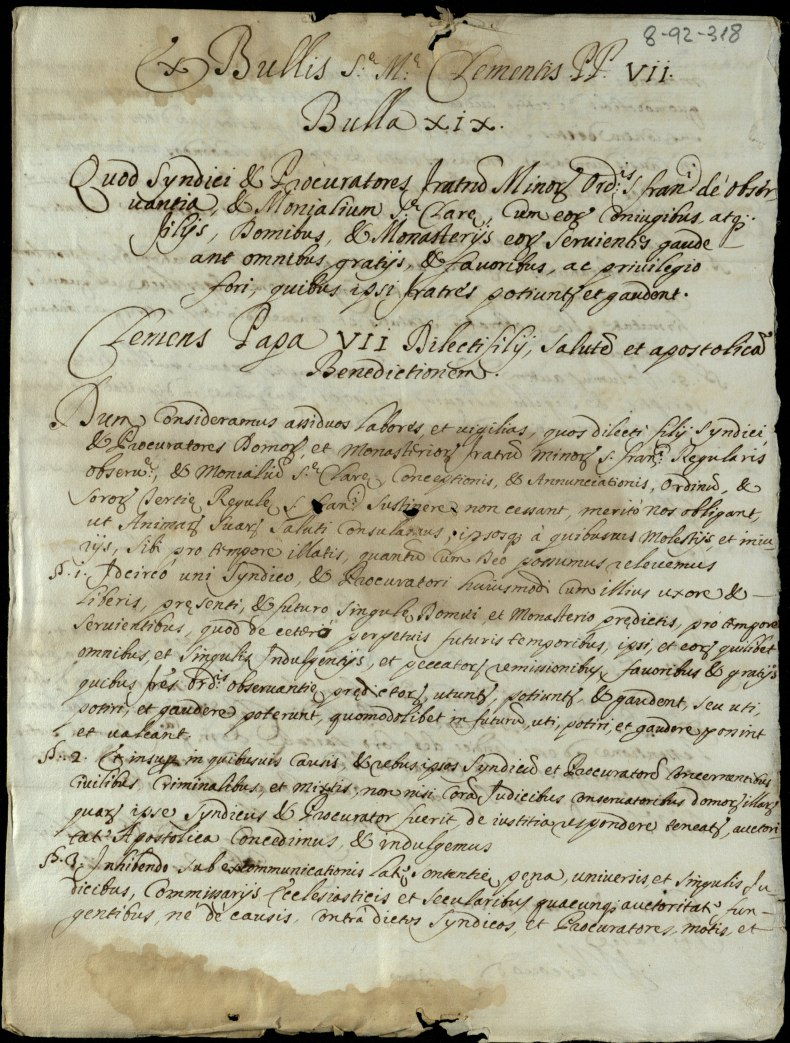 8-92-318
Ex Bullis S.e M.e Clementis PP. VII.
Bulla XIX.
Quod Syndici & Procuratores fratrũ Minorꝝ Ord:is S. fran:i de obser-
uantia, & Monialium S.e Clarę, cum eorꝝ coniugibus, atq;
filijs, Domibus, & Monasterijs eorꝝ Seruientib gaude
ant omnibus gratijs, & favoribus, ac privilegio
fori, quibus ipsi fratres potiuntꝝ et gaudent.
Clemens Papa VII Dilecti filij, salutẽ et apostolicã
Benedictionem.
Dum Consideramus assiduos labores et vigilias, quos dilecti filij Syndici,
& Procuratores Domorꝝ, et Monasteriorꝝ fratrũ minorꝝ S. fran:i Regularis
obseru:e, & Monialiũ S.e Clarę, Conceptionis, & Annunciationis, Ordinũ, &
Sororꝝ Tertię Regulę S. fran:i Sustinere non cessant, meritò nos obligant,
ut Animarꝝ Suarꝝ Saluti Consulamus, ipsosq; à quibusuis Molestijs, et iniu-
rijs, sibi pro tempore illatis, quantũ cum Deo possumus releuemus
§. 1. Idcircò uni Syndico, & Procuratori huiusmodi cum illius uxore &
liberis, pręsenti, & futuro Singulę Domui, et Monasterio prędictis, pro tempore
Seruientibus, quod de cetero perpetuis futuris temporibus, ipsi, et eorꝝ quilibet
omnibus, et Singulis Indulgentijs, et peccatorꝝ remissionibus, favoribus & gratijs
quibus frẽs Ord:is obseruantię prędictorꝝ, utuntꝝ, potiuntꝝ, & gaudent, seu uti,
potiri, et gaudere poterunt, quomodolibet in futurũ, uti, potiri, et gaudere possint
et valeant.
§. 2. Et insup in quibusuis causis, & rebus ipsos Syndicũ et Procuratorẽ Concernentibus
Ciuilibus, Criminalibus, et mixtis, non nisi Corã Judicibus Conseruatoribus domorꝝ illarꝝ
quarꝝ ipse Syndicus & Procurator fuerit, de iustitia respondere teneatꝝ, auctori-
tate Apostolica Concedimus, & indulgemus
§. 3. Inhibendo sub excommunicationis latę sententię pęna, universis et singulis Ju-
dicibus, Commissarijs Ecclesiasticis et Secularibus quacunq; auctoritate fun-
gentibus, ne de causis, contra dictos Syndicos, et Procuratores, motis, et